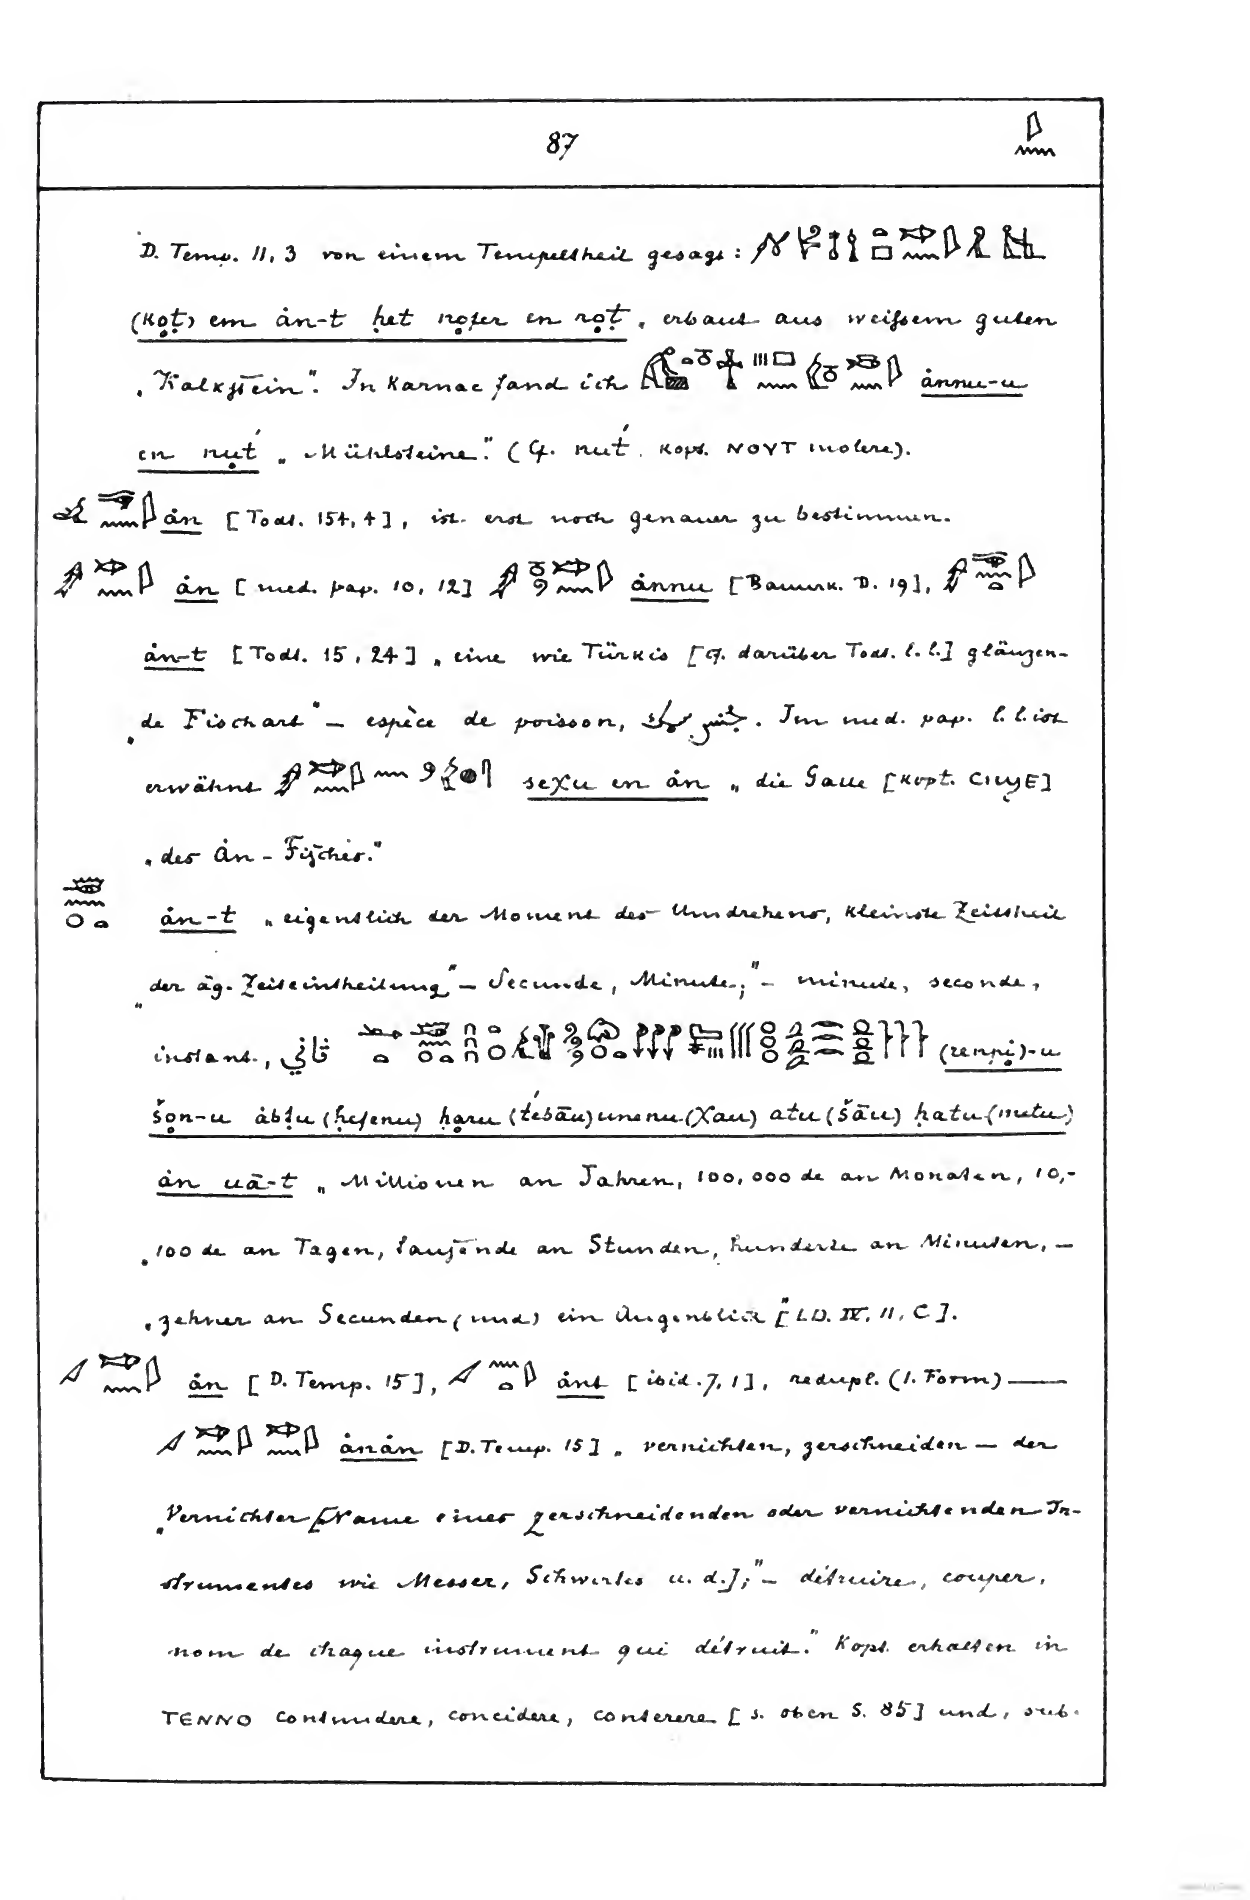 87
D. Temp. 11, 3 von einem Tempeltheil gesagt:
(ḳoṭ) em ȧn-t ḥet nofer en roṭ, erbaut aus weißem guten
„Kalkstein“. In Karnac fand ich ȧnnu-u
en nut́ „Mühlsteine“. (Cf. nut́. kopt. ΝΟΥΤ molere).
ȧn [Todt. 154, 4], ist erst noch genauer zu bestimmen.
ȧn [med. pap. 10, 12] ȧnnu [Bauurk. D. 19],
ȧn-t [Todt. 15, 24] „eine wie Türkis [cf. darüber Todt. l. l.] glänzen-
„de Fischart“ — espèce de poisson, . Im med. pap. l. l. ist
erwähnt seχu en ȧn „die Galle [kopt. ⲤⲒϢⲈ]
„des Ȧn-Fisches.“
ȧn-t „eigentlich der Moment des Umdrehens, kleinste Zeittheil
„der äg. Zeiteintheilung“ — Secunde, Minute;“ — minute, seconde,
instant., ثاني (renpi)-u
šon-u ȧbṭu (ḥefenu) haru (t́ebāu) unenu (χau) atu (šāu) ḥatu (metu)
ȧn uā-t „Millionen an Jahren, 100,000 de an Monaten, 10,-
„100 de an Tagen, tausende an Stunden, hunderte an Minuten, —
„zehner an Secunden (und) ein Augenblick“ [LD. IV, 11, C].
ȧn [D. Temp. 15], ȧnt [ibid. 7, 1], redupl. (1. Form) —
ȧnȧn [D. Temp. 15] „vernichten, zerschneiden — der
„Vernichter [Name eines zerschneidenden oder vernichtenden In-
strumentes wie Messer, Schwertes u. d.];“ — détruire, couper,
nom de chaque instrument qui détruit.“ Kopt. erhalten in
ΤΕΝΝΟ contundere, concidere, conterere [s. oben S. 85] und, sub.